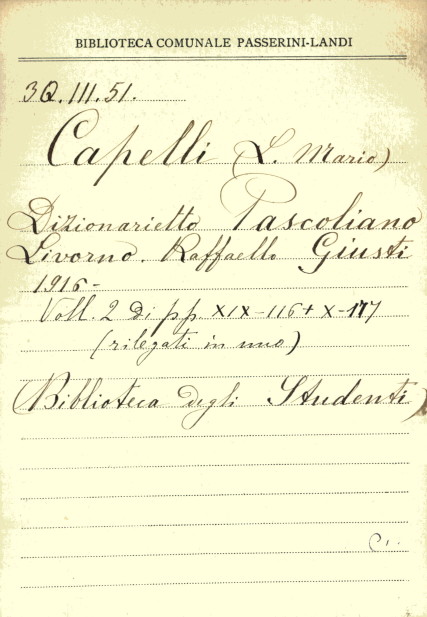 BIBLIOTECA COMUNALE PASSERINI-LANDI
3Q.III.51.
Capelli (L. Mario)
Dizionarietto Pascoliano
Livorno. Raffaello Giusti
1916-
Voll. 2 di pp. XIX-116+X-177
(rilegati in uno)
(Biblioteca degli Studenti)